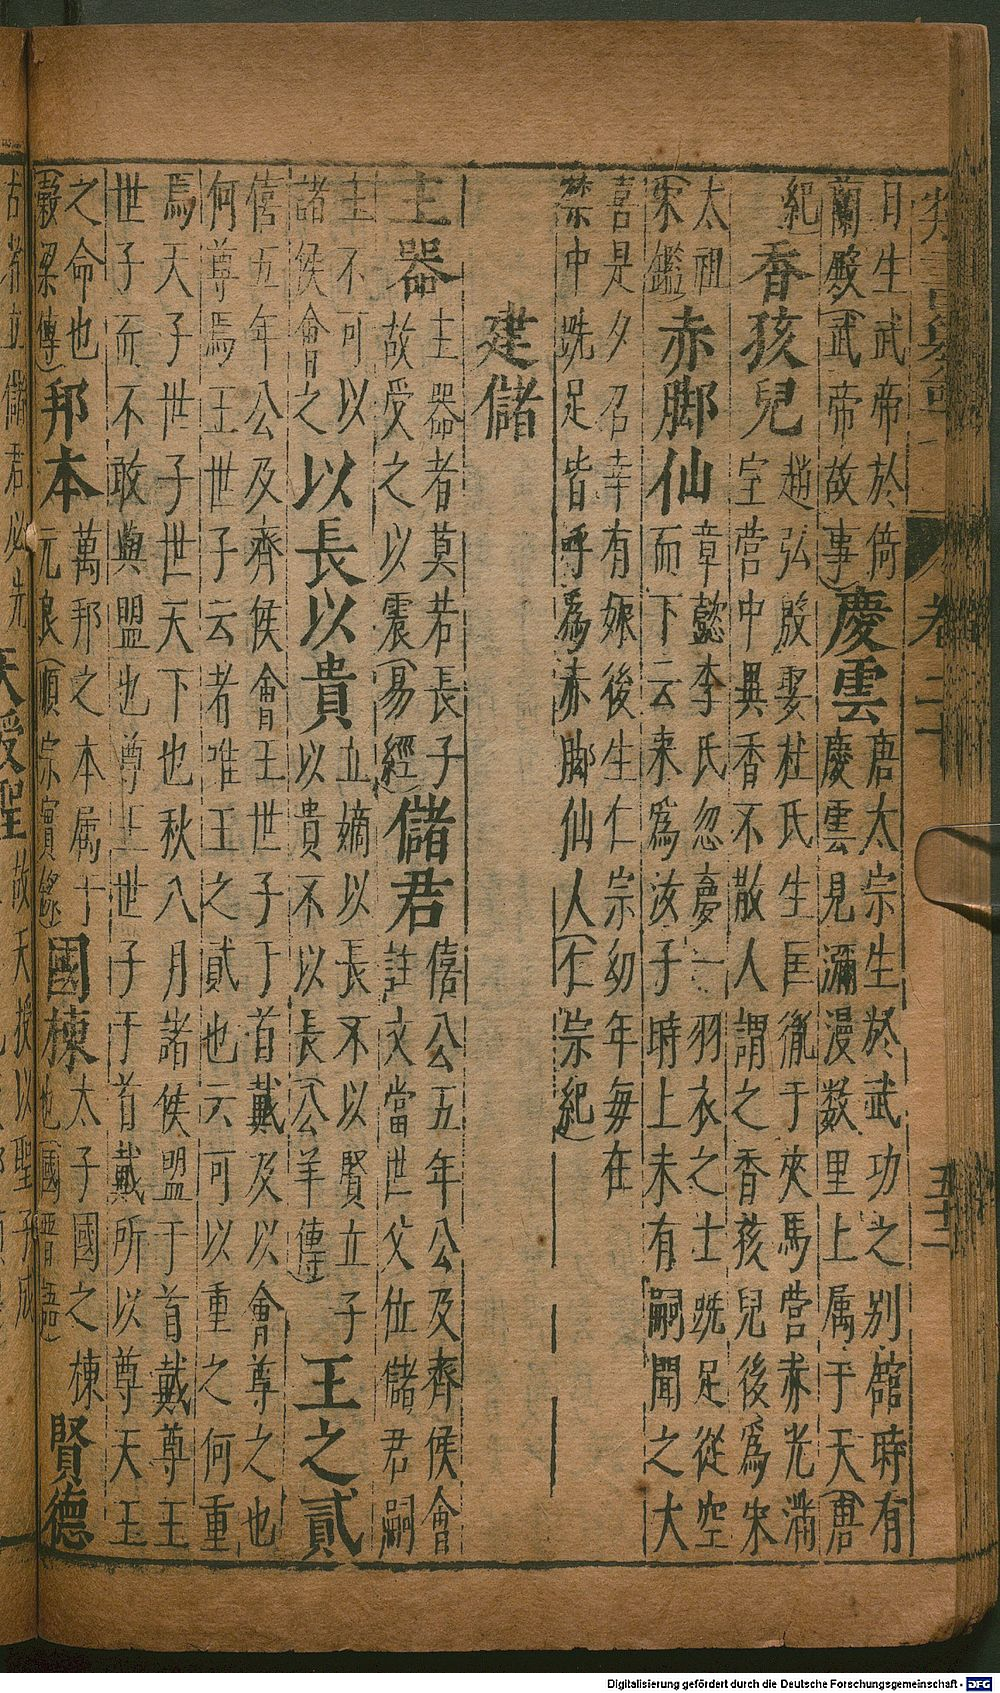 卷二十
日生武帝於倚
蘭殿(武帝故事)
慶雲
唐太宗生於武功之别舘時有
慶雲見瀰漫数里上属于天(唐
紀
香孩兒
趙弘殷娶杜氏生匡胤于夾馬營赤光滿
室營中異香不散人謂之香孩兒後為宋
太祖
(宋鑑)
赤脚仙
章懿李氏忽夢一羽衣之士跣足從空
而下云来為汝子時上未有嗣聞之大
喜是夕召幸有娠後生仁宗幼年每在
禁中跣足皆呼為赤脚仙人(仁宗紀)
建儲
主器
主器者莫若長子
故受之以震(易經)
儲君
僖公五年公及齊侯會
註文當世父位儲君嗣
主不可以
諸侯會之
以長以貴
立嫡以長不以賢立子
以貴不以長(公羊傳)
王之貳
僖五年公及齊侯會王世子于首戴及以會尊之也
何尊焉王世子云者唯王之貳也云可以重之何重
焉天子世子世天下也秋八月諸侯盟于首戴尊王
世子而不敢與盟也尊王世子于首戴所以尊天王
之命也
(穀梁傳)
邦本
萬邦之本属于
元良(順宗實錄)
國棟
太子國之棟
也(國晉語)
賢德
古者立儲君必先
天授聖
故天授以聖子成
Digitalisierung gefördert durch die Deutsche Forschungsgemeinschaft - DFG